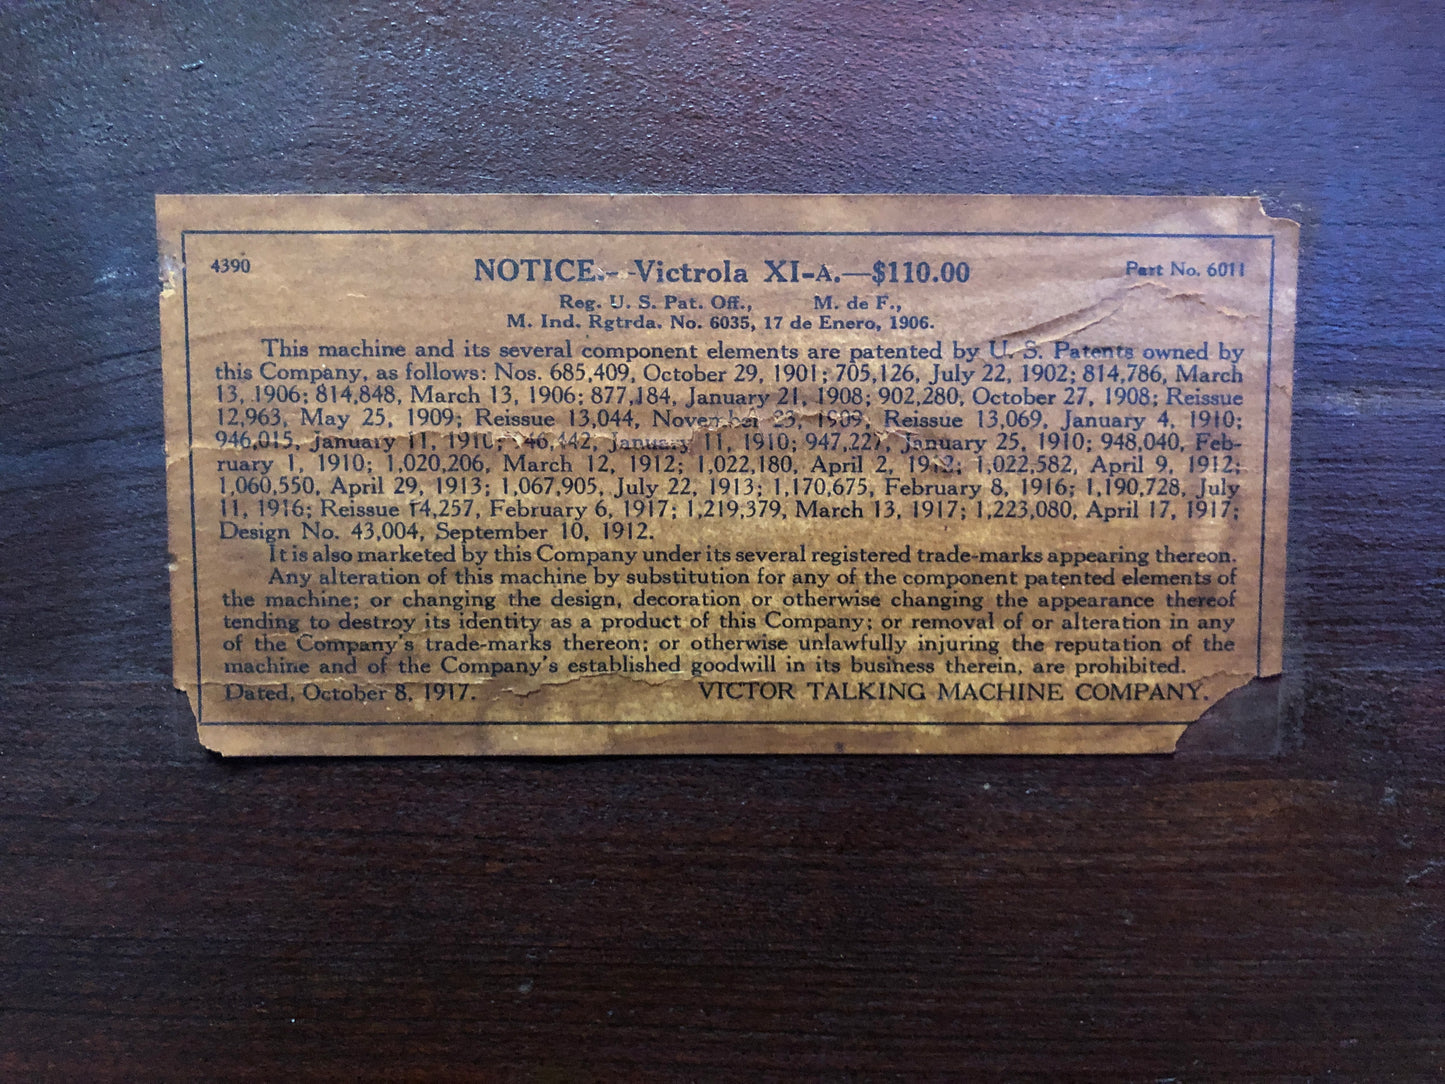 4390 NOTICE.--Victrola XI-A.—$110.00 Part No. 6011
Reg. U. S. Pat. Off., M. de F.,
M. Ind. Rgtrda. No. 6035, 17 de Enero, 1906.
This machine and its several component elements are patented by U. S. Patents owned by
this Company, as follows: Nos. 685,409, October 29, 1901; 705,126, July 22, 1902; 814,786, March
13, 1906; 814,848, March 13, 1906; 877,184, January 21, 1908; 902,280, October 27, 1908; Reissue
12,963, May 25, 1909; Reissue 13,044, November 23, 1909, Reissue 13,069, January 4, 1910;
946,015, January 11, 1910; 946,442; January 11, 1910; 947,227, January 25, 1910; 948,040, Feb-
ruary 1, 1910; 1,020,206, March 12, 1912; 1,022,180, April 2, 1912; 1,022,582, April 9, 1912;
1,060,550, April 29, 1913; 1,067,905, July 22, 1913; 1,170,675, February 8, 1916; 1,190,728, July
11, 1916; Reissue 14,257, February 6, 1917; 1,219,379, March 13, 1917; 1,223,080, April 17, 1917;
Design No. 43,004, September 10, 1912.
It is also marketed by this Company under its several registered trade-marks appearing thereon.
Any alteration of this machine by substitution for any of the component patented elements of
the machine; or changing the design, decoration or otherwise changing the appearance thereof
tending to destroy its identity as a product of this Company; or removal of or alteration in any
of the Company's trade-marks thereon; or otherwise unlawfully injuring the reputation of the
machine and of the Company's established goodwill in its business therein, are prohibited.
Dated, October 8, 1917. VICTOR TALKING MACHINE COMPANY.